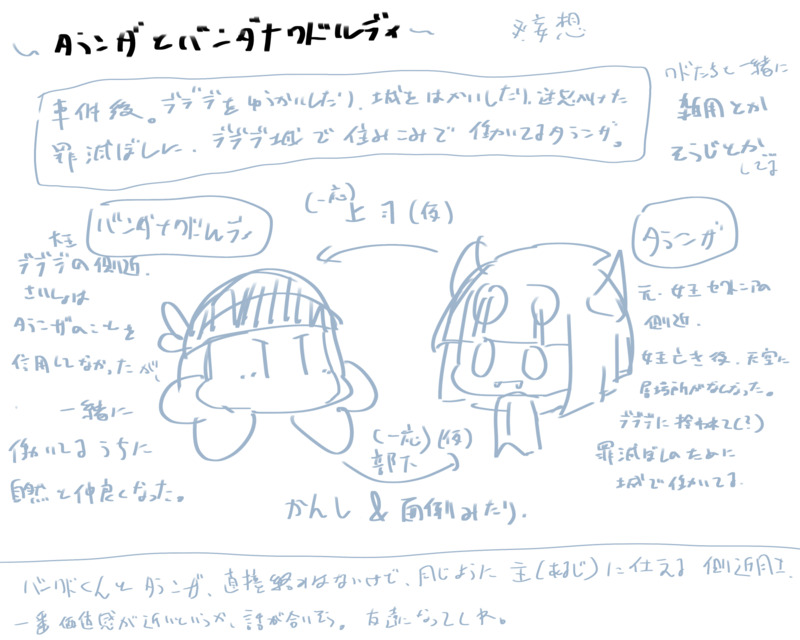 〜 タランザとバンダナワドルディ 〜
妄想
事件後。デデデをゆうかいしたり、城をはかいしたり、迷惑かけた
罪滅ぼしに、デデデ城で住みこみで働いてるタランザ。
ワドたちと一緒に
雑用とか
そうじとか
してる
(一応)
上司(仮)
バンダナワドルディ
大王
デデデの側近。
さいしょは
タランザのことを
信用してなかったが、
一緒に
働いてるうちに
自然と仲良くなった。
タランザ
元・女王セクトニアの
側近。
女王亡き後、天空に
居場所がなくなった。
デデデに拾われて(?)
罪滅ぼしのために
城で働いてる
(一応)(仮)
部下
かんし & 面倒みたり。
バンワドくんとタランザ、直接絡みはないけど、同じように主(あるじ)に仕える側近同士
一番価値感が近いというか、話が合いそう。友達になってくれ。